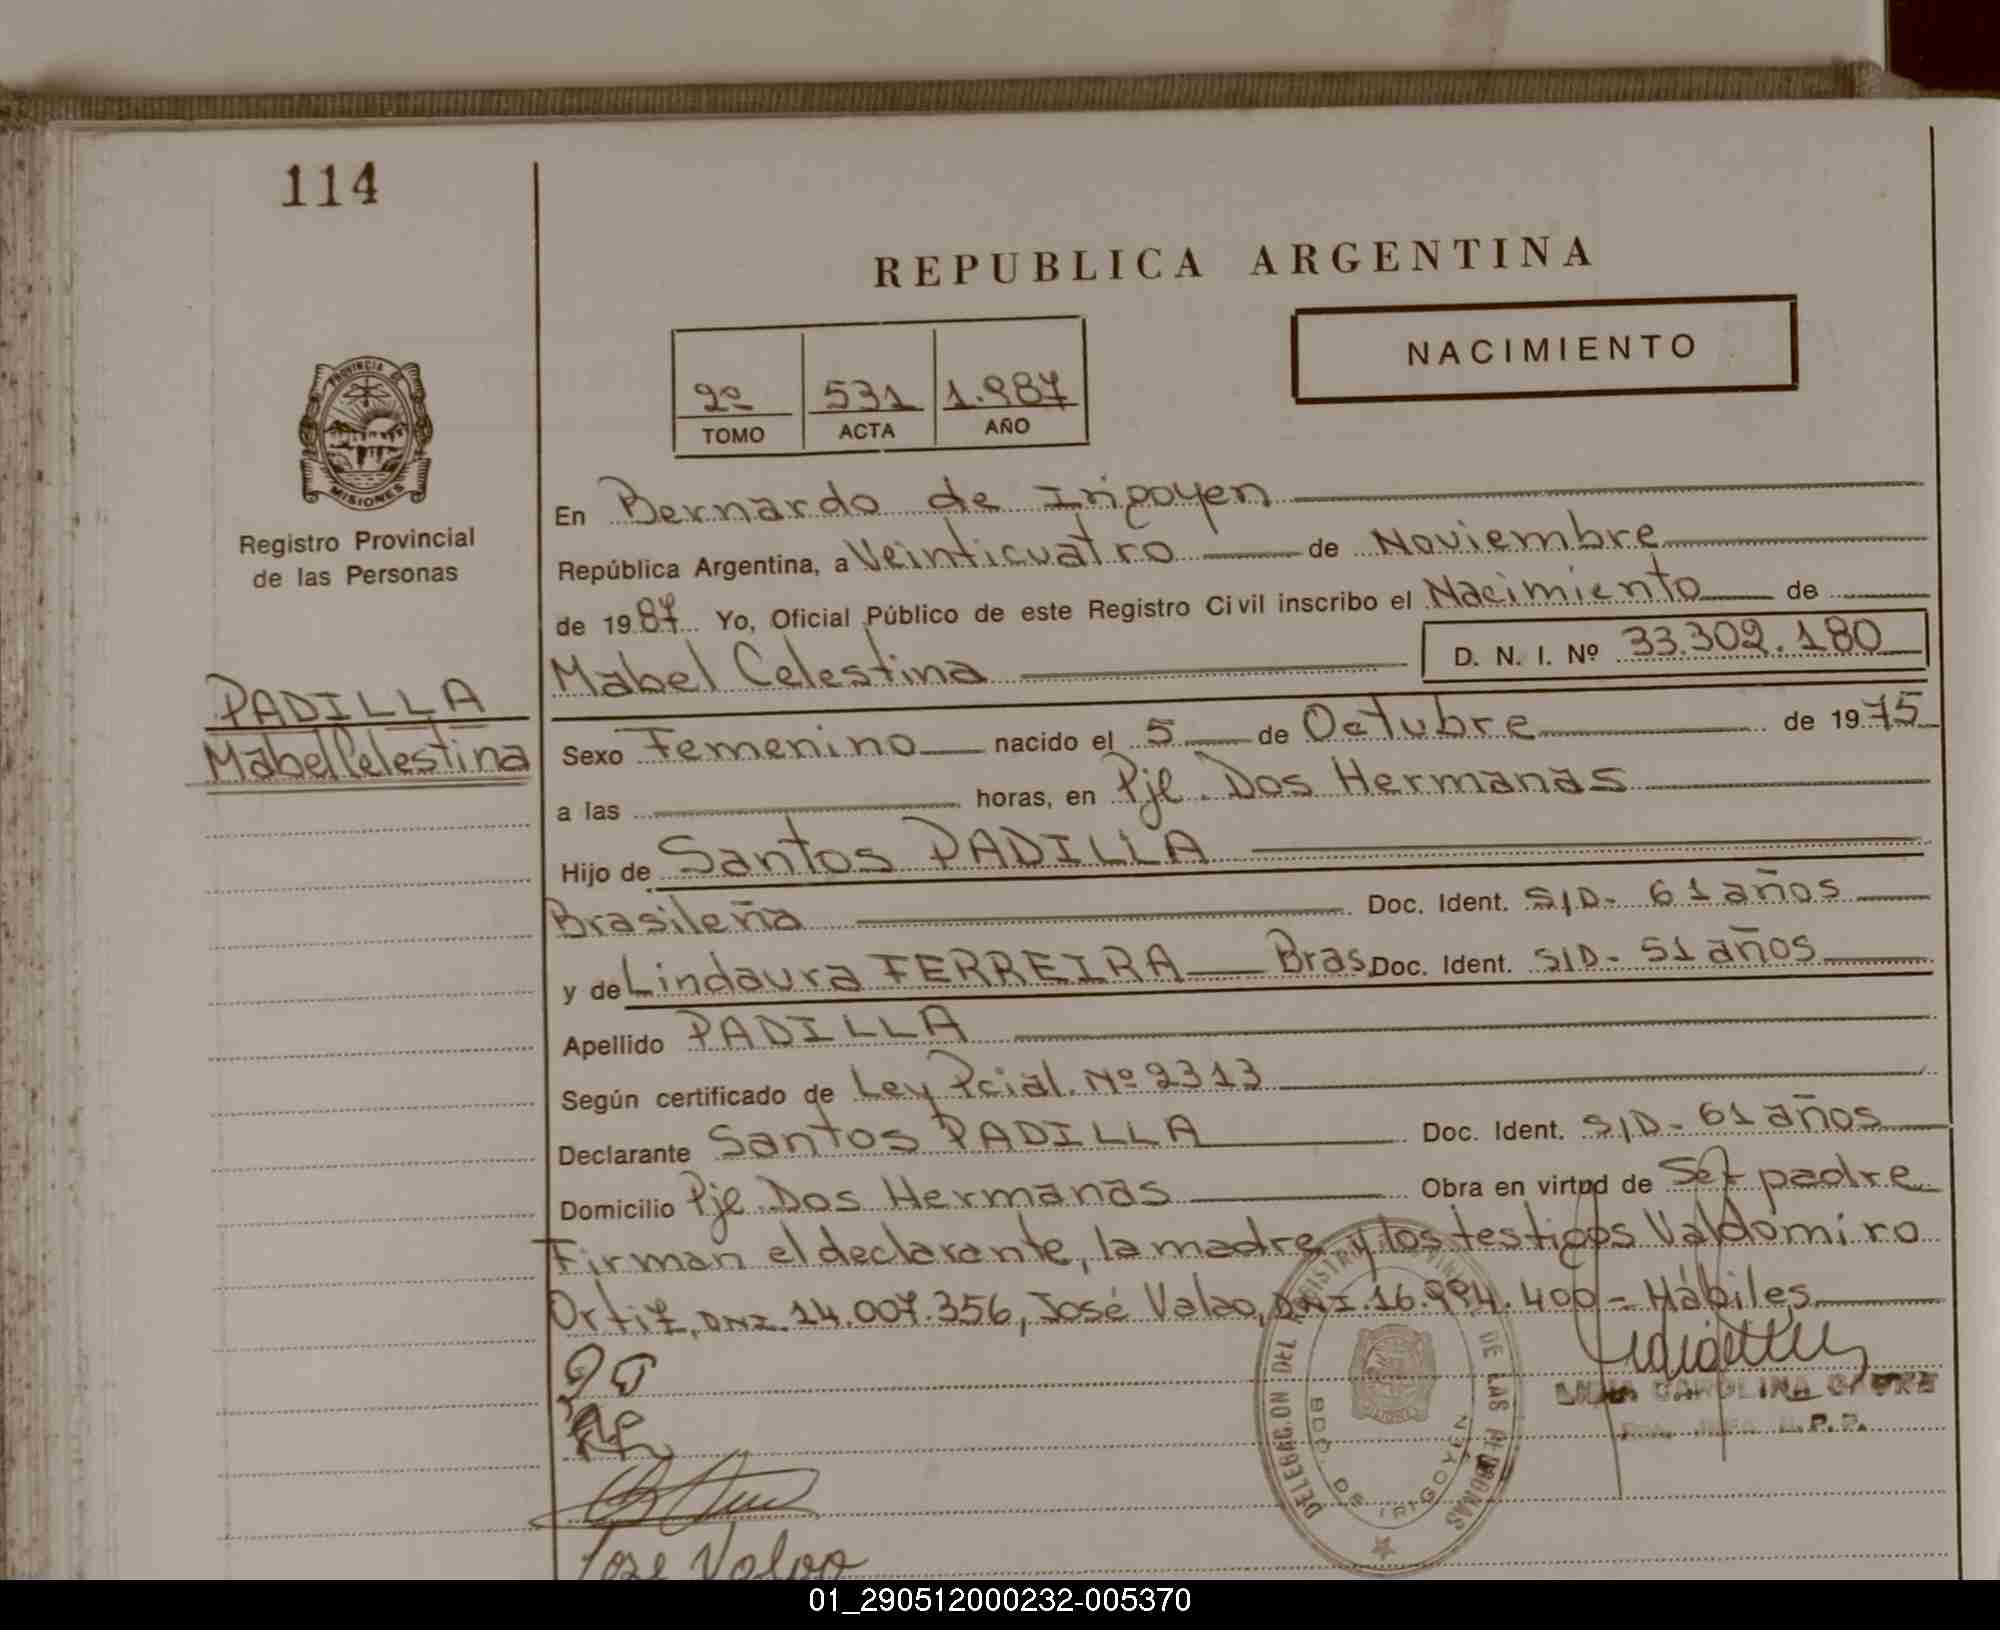 114
REPUBLICA ARGENTINA
NACIMIENTO
2º 531 1.987
TOMO ACTA AÑO
PROVINCIA DE
MISIONES
Registro Provincial
de las Personas
En Bernardo de Irigoyen
República Argentina, a Veinticuatro de Noviembre
de 1987 Yo, Oficial Público de este Registro Civil inscribo el Nacimiento de
Mabel Celestina D. N. I. Nº 33.302.180
PADILLA
Mabel Celestina
Sexo Femenino nacido el 5 de Octubre de 1975
a las horas, en Pje. Dos Hermanas
Hijo de Santos PADILLA
Brasileña Doc. Ident. S/D- 61 años
y de Lindaura FERREIRA Bras. Doc. Ident. S/D- 51 años
Apellido PADILLA
Según certificado de Ley Pcial. Nº 2313
Declarante Santos PADILLA Doc. Ident. S/D- 61 años
Domicilio Pje. Dos Hermanas Obra en virtud de Ser padre
Firman el declarante, la madre y los testigos Valdomiro
Ortiz, DNI. 14.007.356, José Valao, DNI. 16.994.400 - Hábiles
DELEGACION DEL REGISTRO DE LAS PERSONAS
BDO. DE IRIGOYEN
CAROLINA
R.P.P.
Jose Valao
01_290512000232-005370